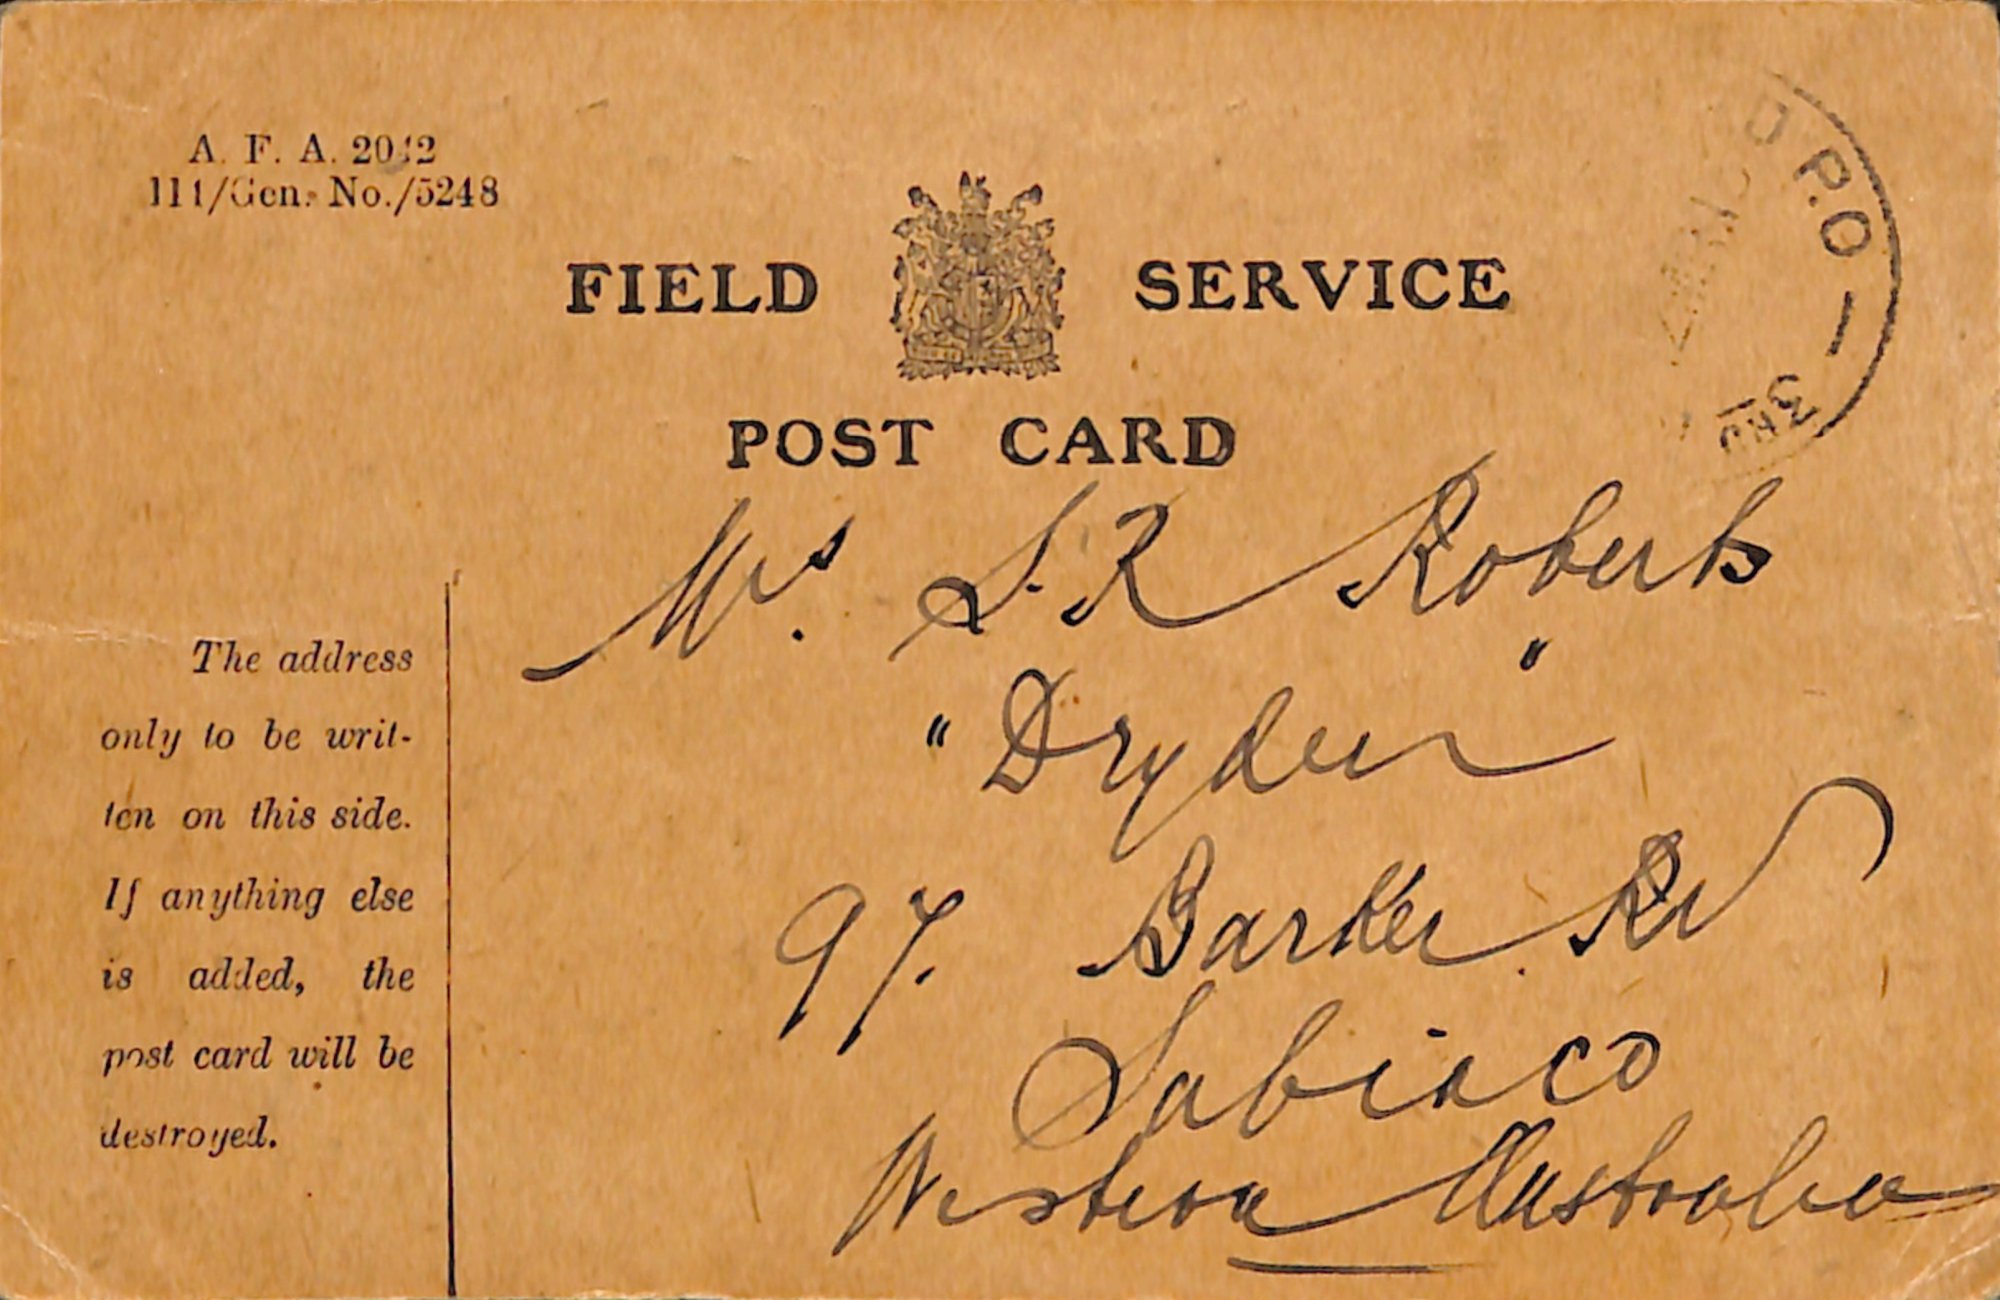 A. F. A. 2042
114/Gen. No./5248
FIELD SERVICE
POST CARD
P.O
3RD
The address
only to be writ-
ten on this side.
If anything else
is added, the
post card will be
destroyed.
Mrs. S. R Roberts
"Dryden"
97. Barker Rd
Subiaco
Western Australia